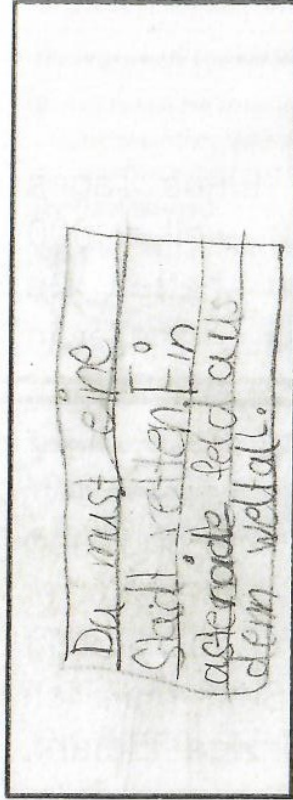 Du must eine
Stadt retten. Ein
asteroide feld aus
dem weltall.